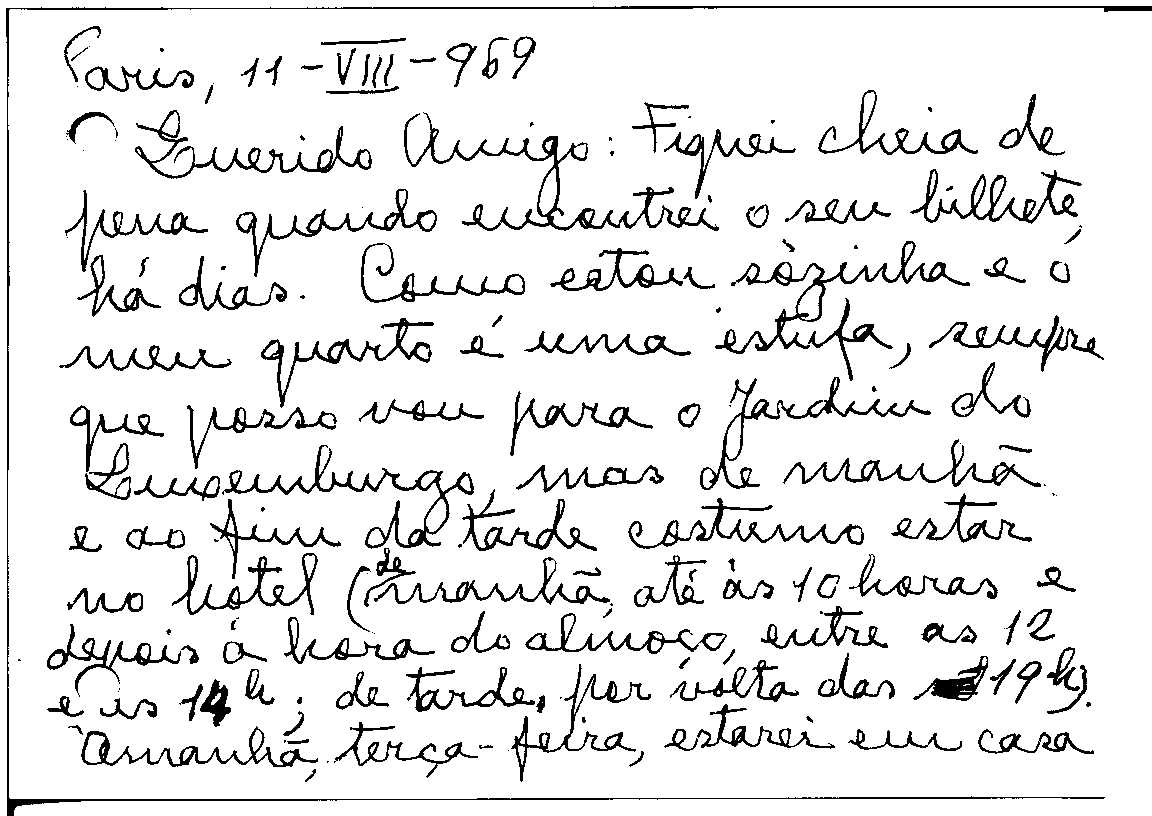 Paris, 11-VIII-969
Querido Amigo: Fiquei cheia de
pena quando encontrei o seu bilhete,
há dias. Como estou sòzinha e o
meu quarto é uma estufa, sempre
que posso vou para o Jardim do
Luxemburgo, mas de manhã
e ao fim da tarde costumo estar
no hotel (de manhã, até às 10 horas e
depois à hora do almoço, entre as 12
e as 14h; de tarde, por volta das 19h).
Amanhã, terça-feira, estarei em casa